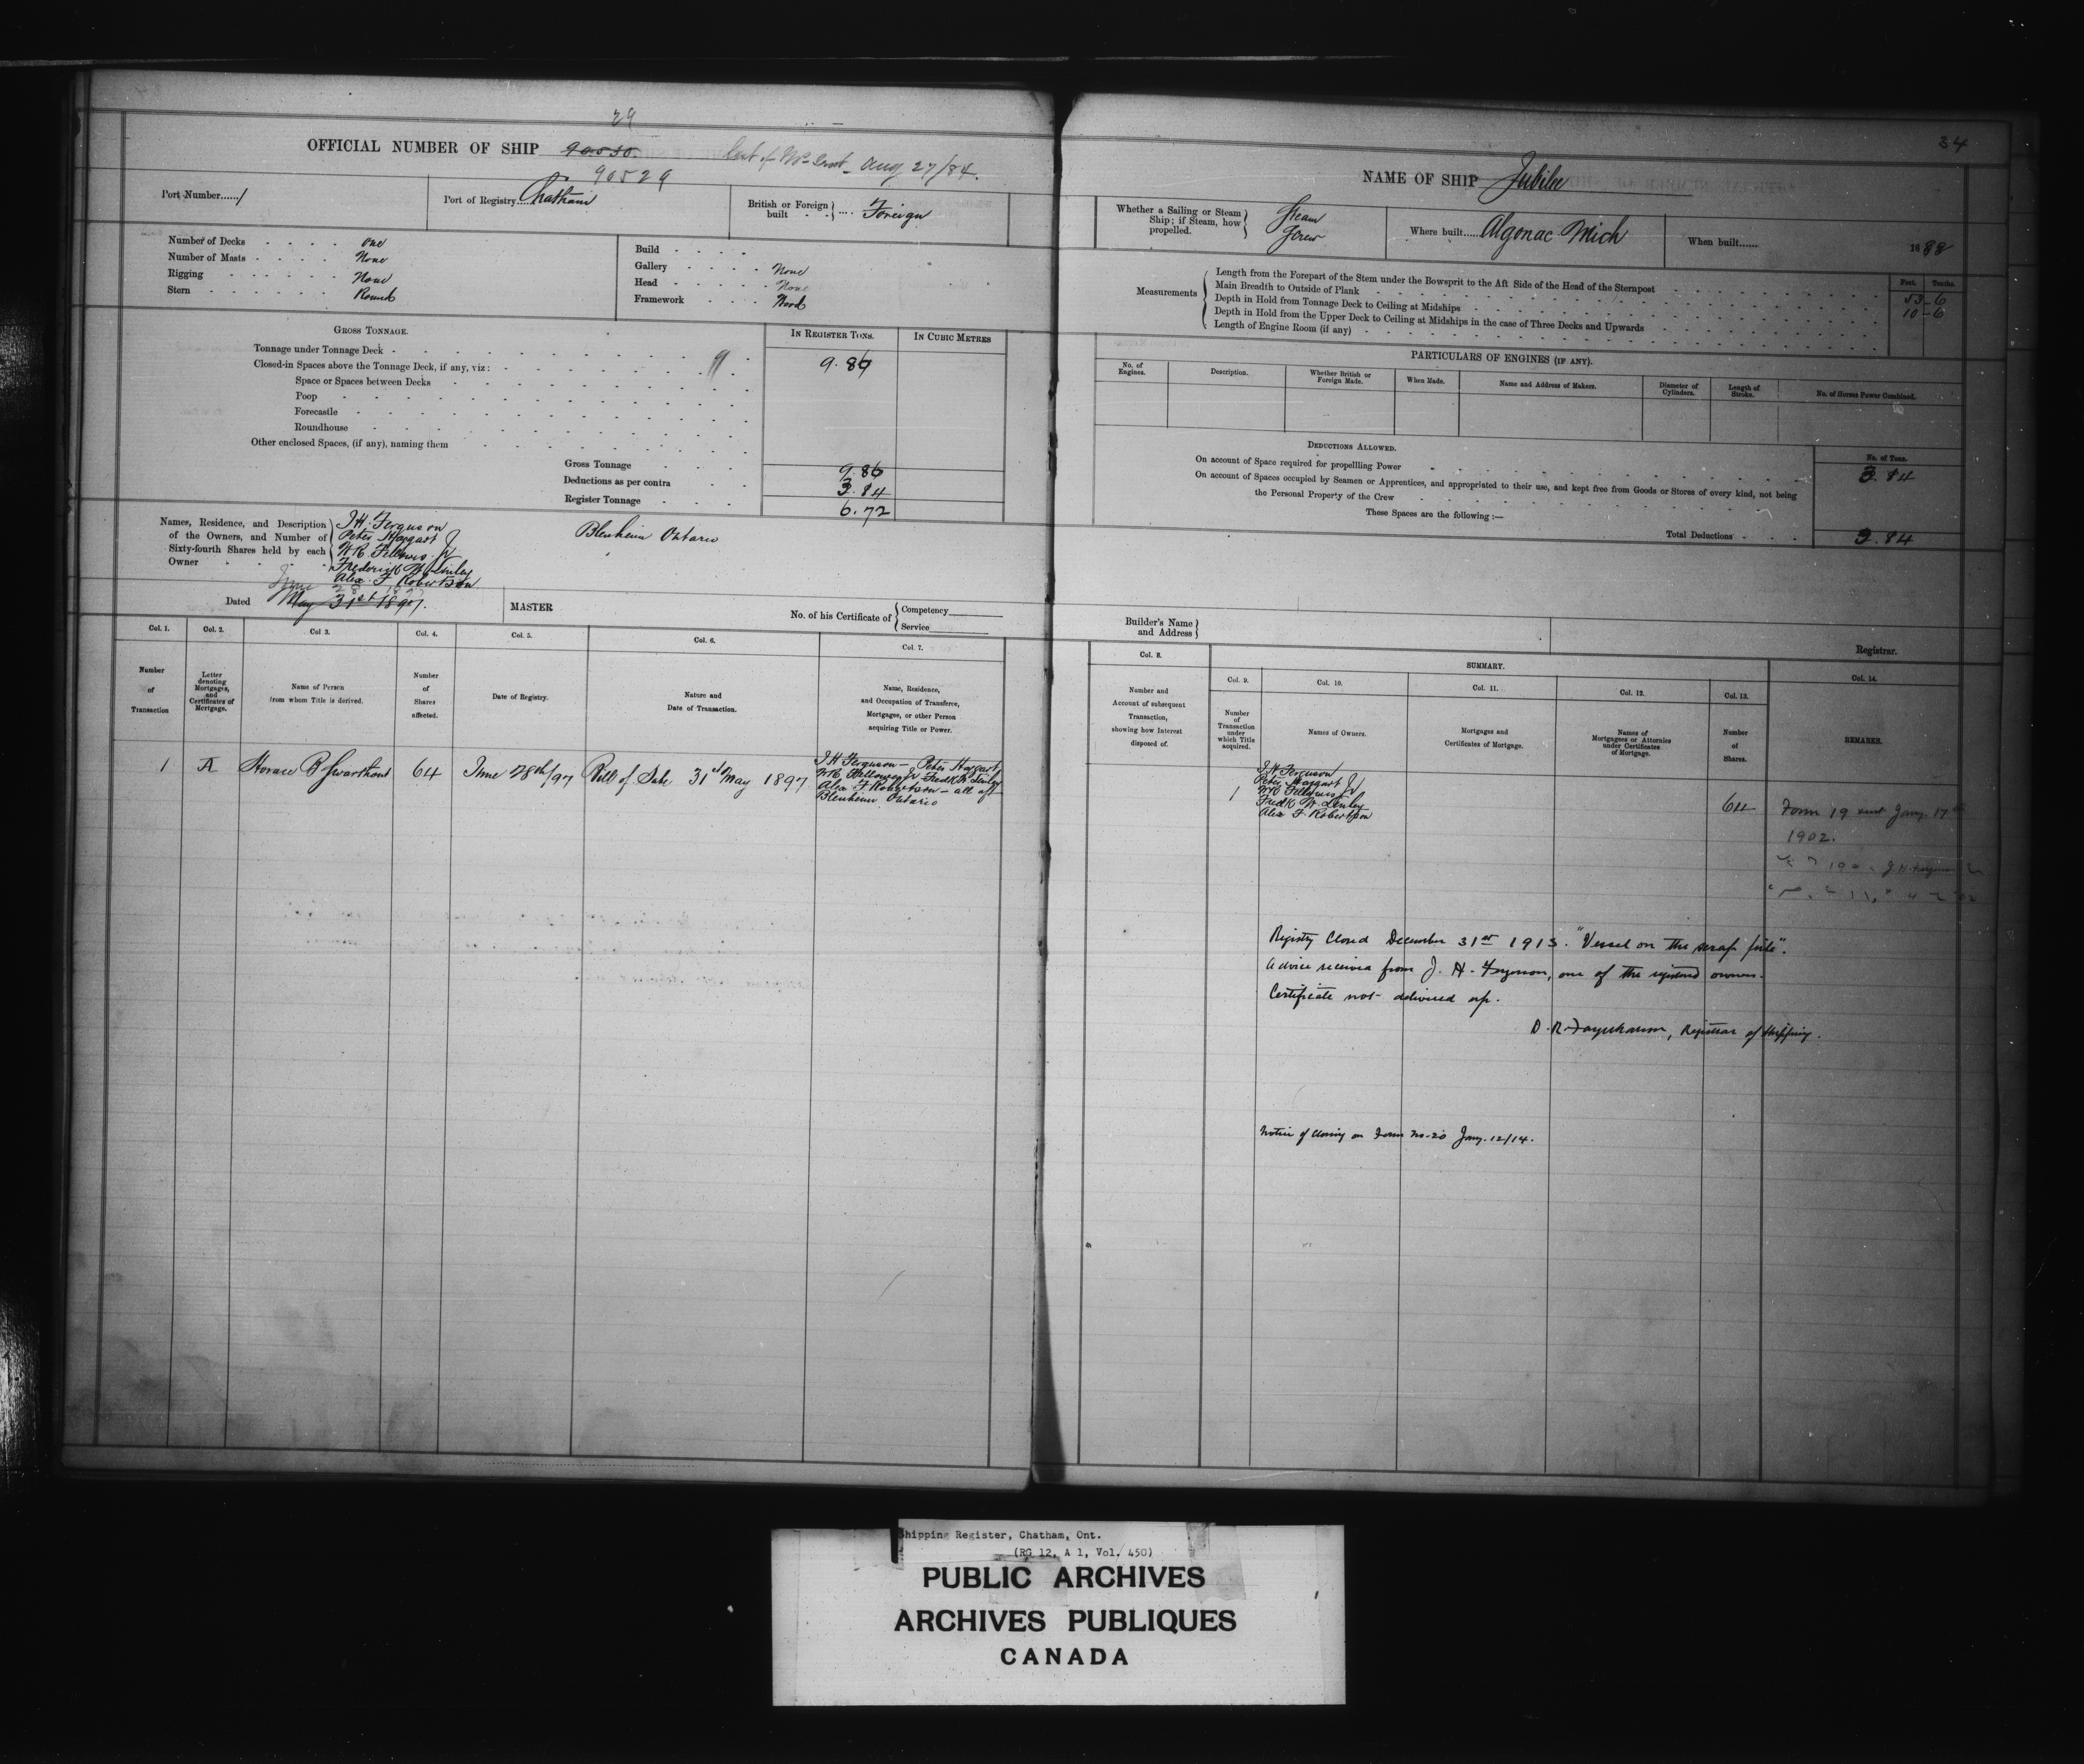 29
OFFICIAL NUMBER OF SHIP 90530. Aug 27/84.
90529
Port Number....../
Port of Registry....Chatham
British or Foreign built } .... Foreign
Number of Decks - - - - One
Number of Masts - - - - None
Rigging - - - - - None
Stern - - - - - - Round
Build - - - - -
Gallery - - - - None
Head - - - - - None
Framework - - - - Wood
GROSS TONNAGE.
IN REGISTER TONS.
IN CUBIC METRES
Tonnage under Tonnage Deck -
Closed-in Spaces above the Tonnage Deck, if any, viz: 9.86
Space or Spaces between Decks
Poop
Forecastle
Roundhouse
Other enclosed Spaces, (if any), naming them
Gross Tonnage 9.86
Deductions as per contra 3.84
Register Tonnage 6.72
Names, Residence, and Description of the Owners, and Number of Sixty-fourth Shares held by each Owner
J.H. Ferguson
Peter Haggart Jr
WR. Fellows Jr
Frederick W
Alex. F Robertson
Blenheim Ontario
June
Dated May 31st 1897.
MASTER
No. of his Certificate of { Competency
Service
Col. 1.
Col. 2.
Col 3.
Col. 4.
Col. 5.
Col. 6.
Col. 7.
Number of Transaction
Letter denoting Mortgages, and Certificates of Mortgage.
Name of Person from whom Title is derived.
Number of Shares affected.
Date of Registry.
Nature and Date of Transaction.
Name, Residence, and Occupation of Transferee, Mortgages, or other Person acquiring Title or Power.
1 A Horace B Swarthout 64 June 28th/97 Bill of Sale 31st May 1897
J H Ferguson - Peter Haggart
WR Fellows Jr Fredk W
Alex F Robertson - all of
Blenheim, Ontario
34
NAME OF SHIP Jubilee
Whether a Sailing or Steam Ship; if Steam, how propelled. } Steam Screw
Where built.....Algonac Mich
When built...... 1888
Measurements
Feet. Tenths.
Length from the Forepart of the Stem under the Bowsprit to the Aft Side of the Head of the Sternpost 53-6
Main Breadth to Outside of Plank 10-6
Depth in Hold from Tonnage Deck to Ceiling at Midships
Depth in Hold from the Upper Deck to Ceiling at Midships in the case of Three Decks and Upwards
Length of Engine Room (if any)
PARTICULARS OF ENGINES (IF ANY).
No. of Engines.
Description.
Whether British or Foreign Made.
When Made.
Name and Address of Makers.
Diameter of Cylinders.
Length of Stroke.
No. of Horses Power Combined.
DEDUCTIONS ALLOWED.
No. of Tons.
On account of Space required for propellling Power 3.84
On account of Spaces occupied by Seamen or Apprentices, and appropriated to their use, and kept free from Goods or Stores of every kind, not being
the Personal Property of the Crew
These Spaces are the following :—
Total Deductions 3.84
Builder's Name and Address }
Registrar.
Col. 8.
SUMMARY.
Col. 9.
Col. 10.
Col. 11.
Col. 12.
Col. 13.
Col. 14.
Number and Account of subsequent Transaction, showing how Interest disposed of.
Number of Transaction under which Title acquired.
Names of Owners.
Mortgages and Certificates of Mortgage.
Names of Mortgagees or Attornies under Certificates of Mortgage.
Number of Shares.
REMARKS.
J. H. Ferguson
Peter Haggart Jr
1 WR Fellows Jr
Fredk W.
Alex F. Robertson
64
Form 19 sent Jany. 17th
1902.
Registry Closed December 31st 1913. "Vessel on the scrap pile".
Advice received from J. H. Ferguson, one of the registered owners.
Certificate not delivered up.
D. R. Farquharson, Registrar of Shipping.
Notice of closing on Form No-20 Jany. 12/14.
Shipping Register, Chatham, Ont.
(RG 12, A 1, Vol. 450)
PUBLIC ARCHIVES
ARCHIVES PUBLIQUES
CANADA